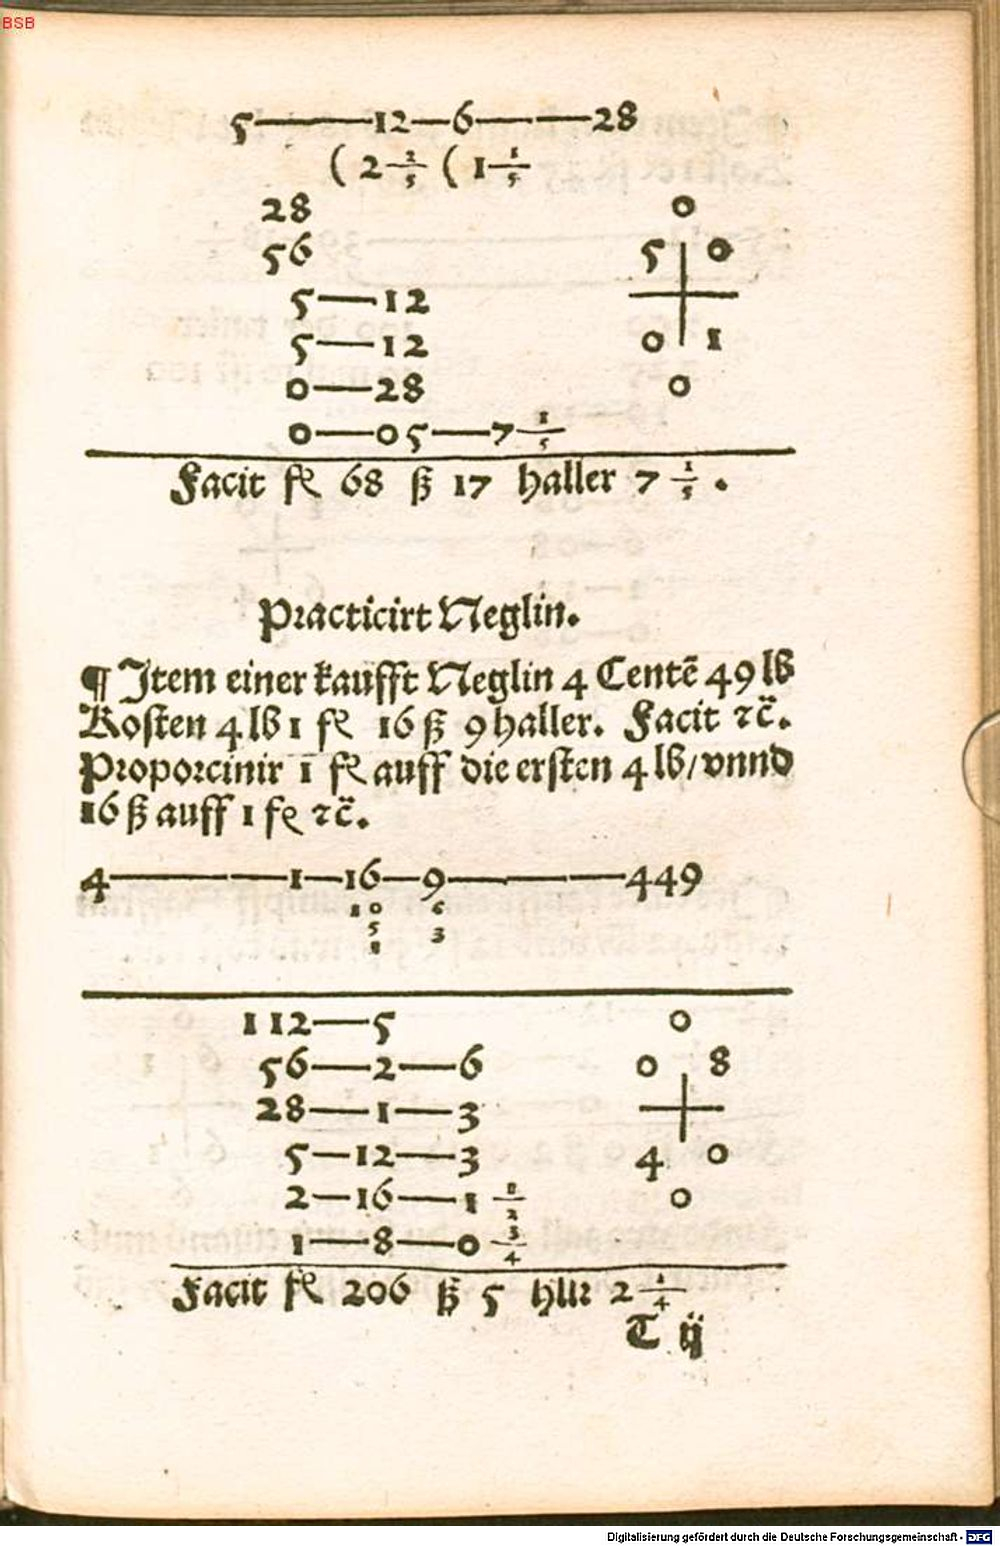 BSB
5——12—6——28
( 2 2/5 ( 1 1/5
28
56
5—12
5—12
0—28
0—05—7 1/5
0
5 0
0 1
0
Facit fl 68 ß 17 haller 7 1/5 .
Practicirt Neglin.
¶ Item einer kaufft Neglin 4 Centē 49 lb
Kosten 4 lb 1 fl 16 ß 9 haller. Facit ⁊c̄.
Proporcinir 1 fl auff die ersten 4 lb/ vnnd
16 ß auff 1 fl ⁊c̄.
4———1—16—9———449
10 6
5 3
1
112—5
56—2—6
28—1—3
5—12—3
2—16—1 1/2
1—8—0 3/4
0
0 8
4 0
0
Facit fl 206 ß 5 hllr 2 1/4
T ij
Digitalisierung gefördert durch die Deutsche Forschungsgemeinschaft - DFG